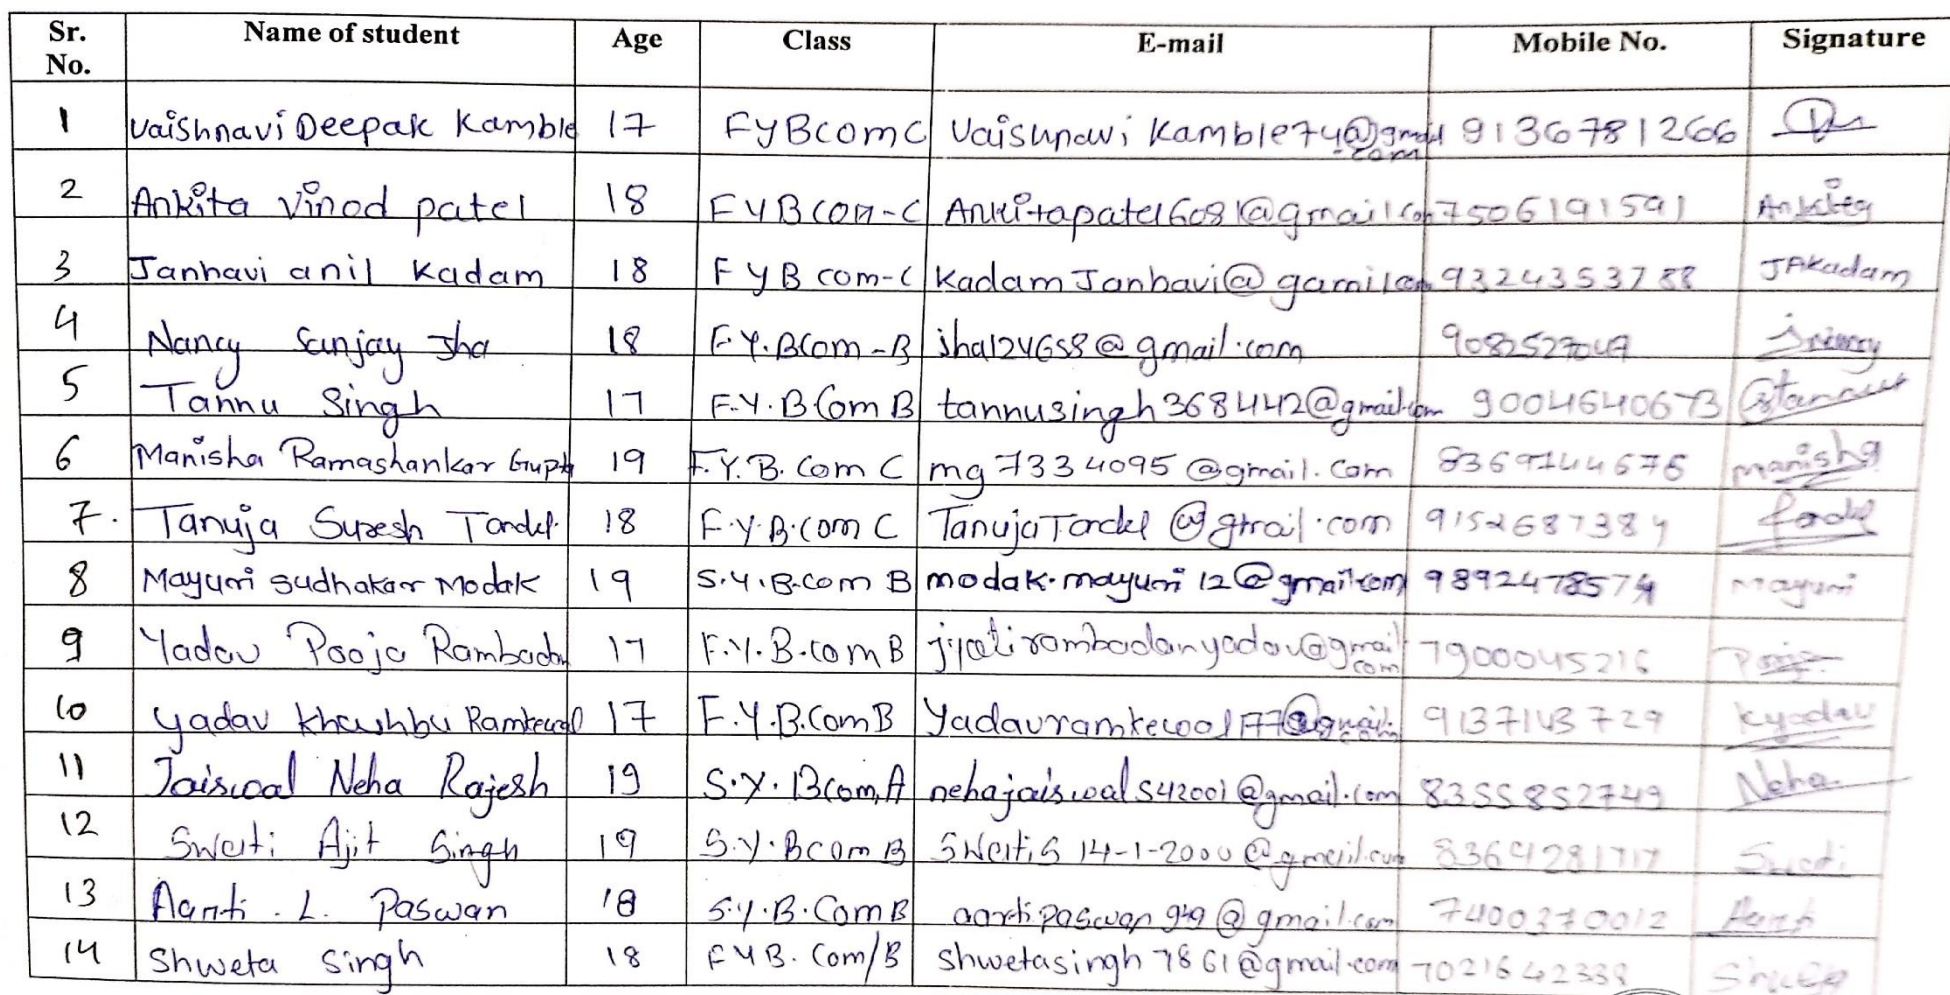 Sr. No. Name of student Age Class E-mail Mobile No. Signature
1 Vaishnavi Deepak Kamble 17 FYBcom C Vaishnavi Kamble74@gmail.com 9136781266
2 Ankita Vinod patel 18 FYBcom-C Ankitapatel6081@gmail.com 7506191591 Ankita
3 Janhavi anil Kadam 18 FYB com-C Kadam Janhavi@gamil.com 9324353788 JAKadam
4 Nancy Sanjay Jha 18 F.Y.BCom-B jha124658@gmail.com 9082527049
5 Tannu Singh 17 F.Y.B.Com B tannusingh368442@gmail.com 9004640673
6 Manisha Ramashankar Gupta 19 F.Y.B.Com C mg7334095@gmail.com manisha
7. Tanuja Suresh Tandel 18 F.Y.B.com C TanujaTandel@gmail.com 9152687384
8 Mayuri Sudhakar Modak 19 S.Y.B.com B modak.mayuri12@gmail.com 9892478574 Mayuri
9 Yadav Pooja Rambadan 17 F.Y.B.com B jyotirambadanyadav@gmail.com 7900045216
10 yadav khushbu Ramkewal 17 F.Y.B.Com B Yadavramkewal177@gmail.com 9137143729 kyadav
11 Jaiswal Neha Rajesh 19 S.Y.Bcom,A nehajaiswal542001@gmail.com 8355852749 Neha
12 Swati Ajit Singh 19 S.Y.Bcom B SwatiS14-1-2000@gmail.com 8369281717 Swati
13 Aarti. L. Paswan 18 S.Y.B.Com B aartipaswan949@gmail.com 7400370012 Aarti
14 Shweta Singh 18 FYB.Com/B Shwetasingh7861@gmail.com 7021642338 Shweta